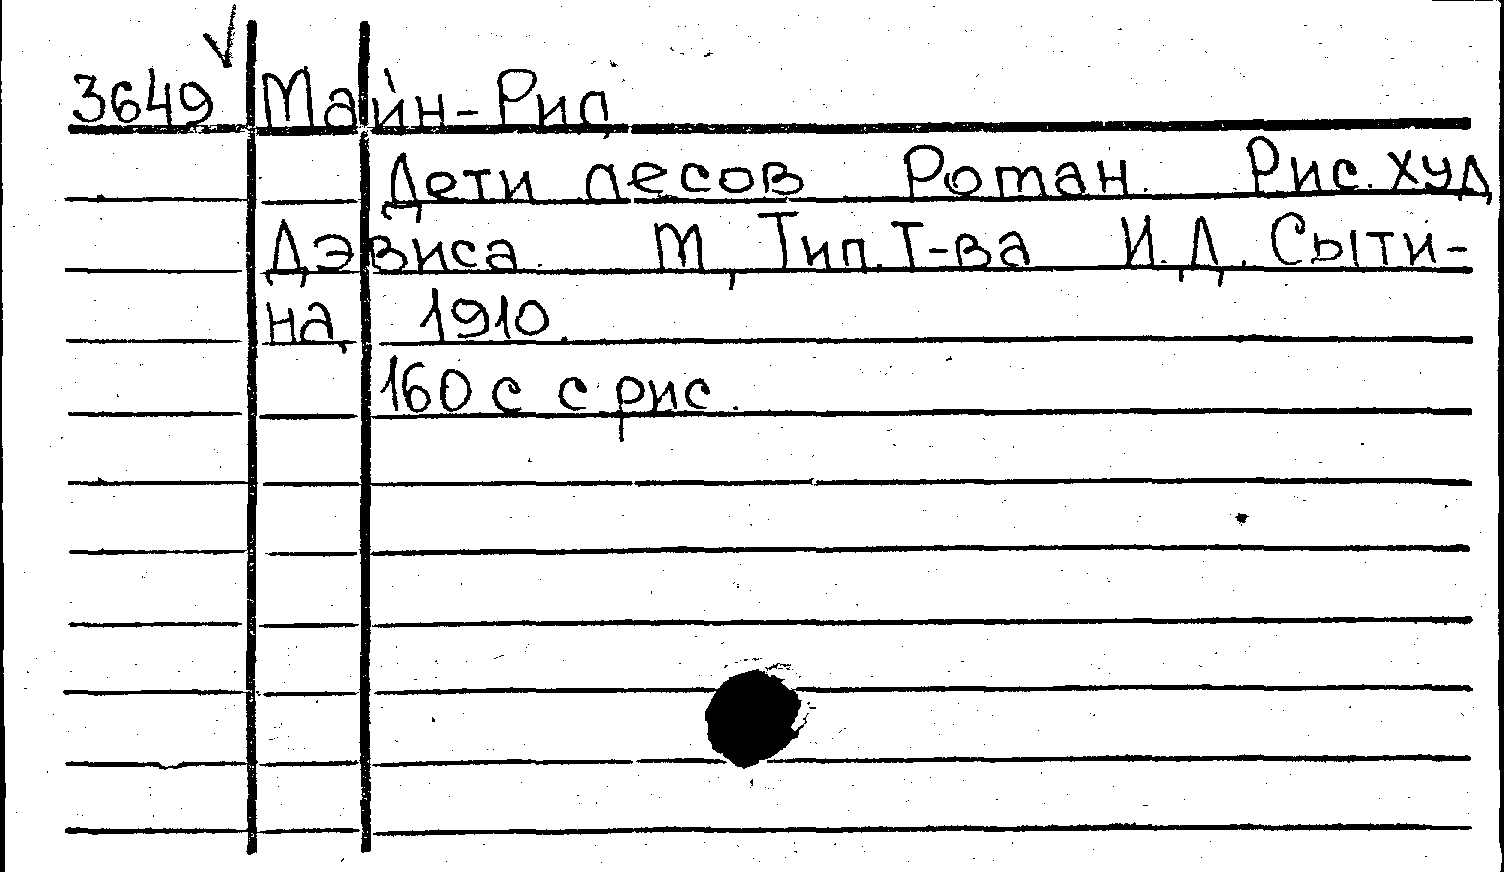 3649 Майн-Рид
Дети лесов Роман. Рис. худ
Дэвиса. М, Тип. Т-ва И.Д. Сыти-
на, 1910.
160 с с рис.